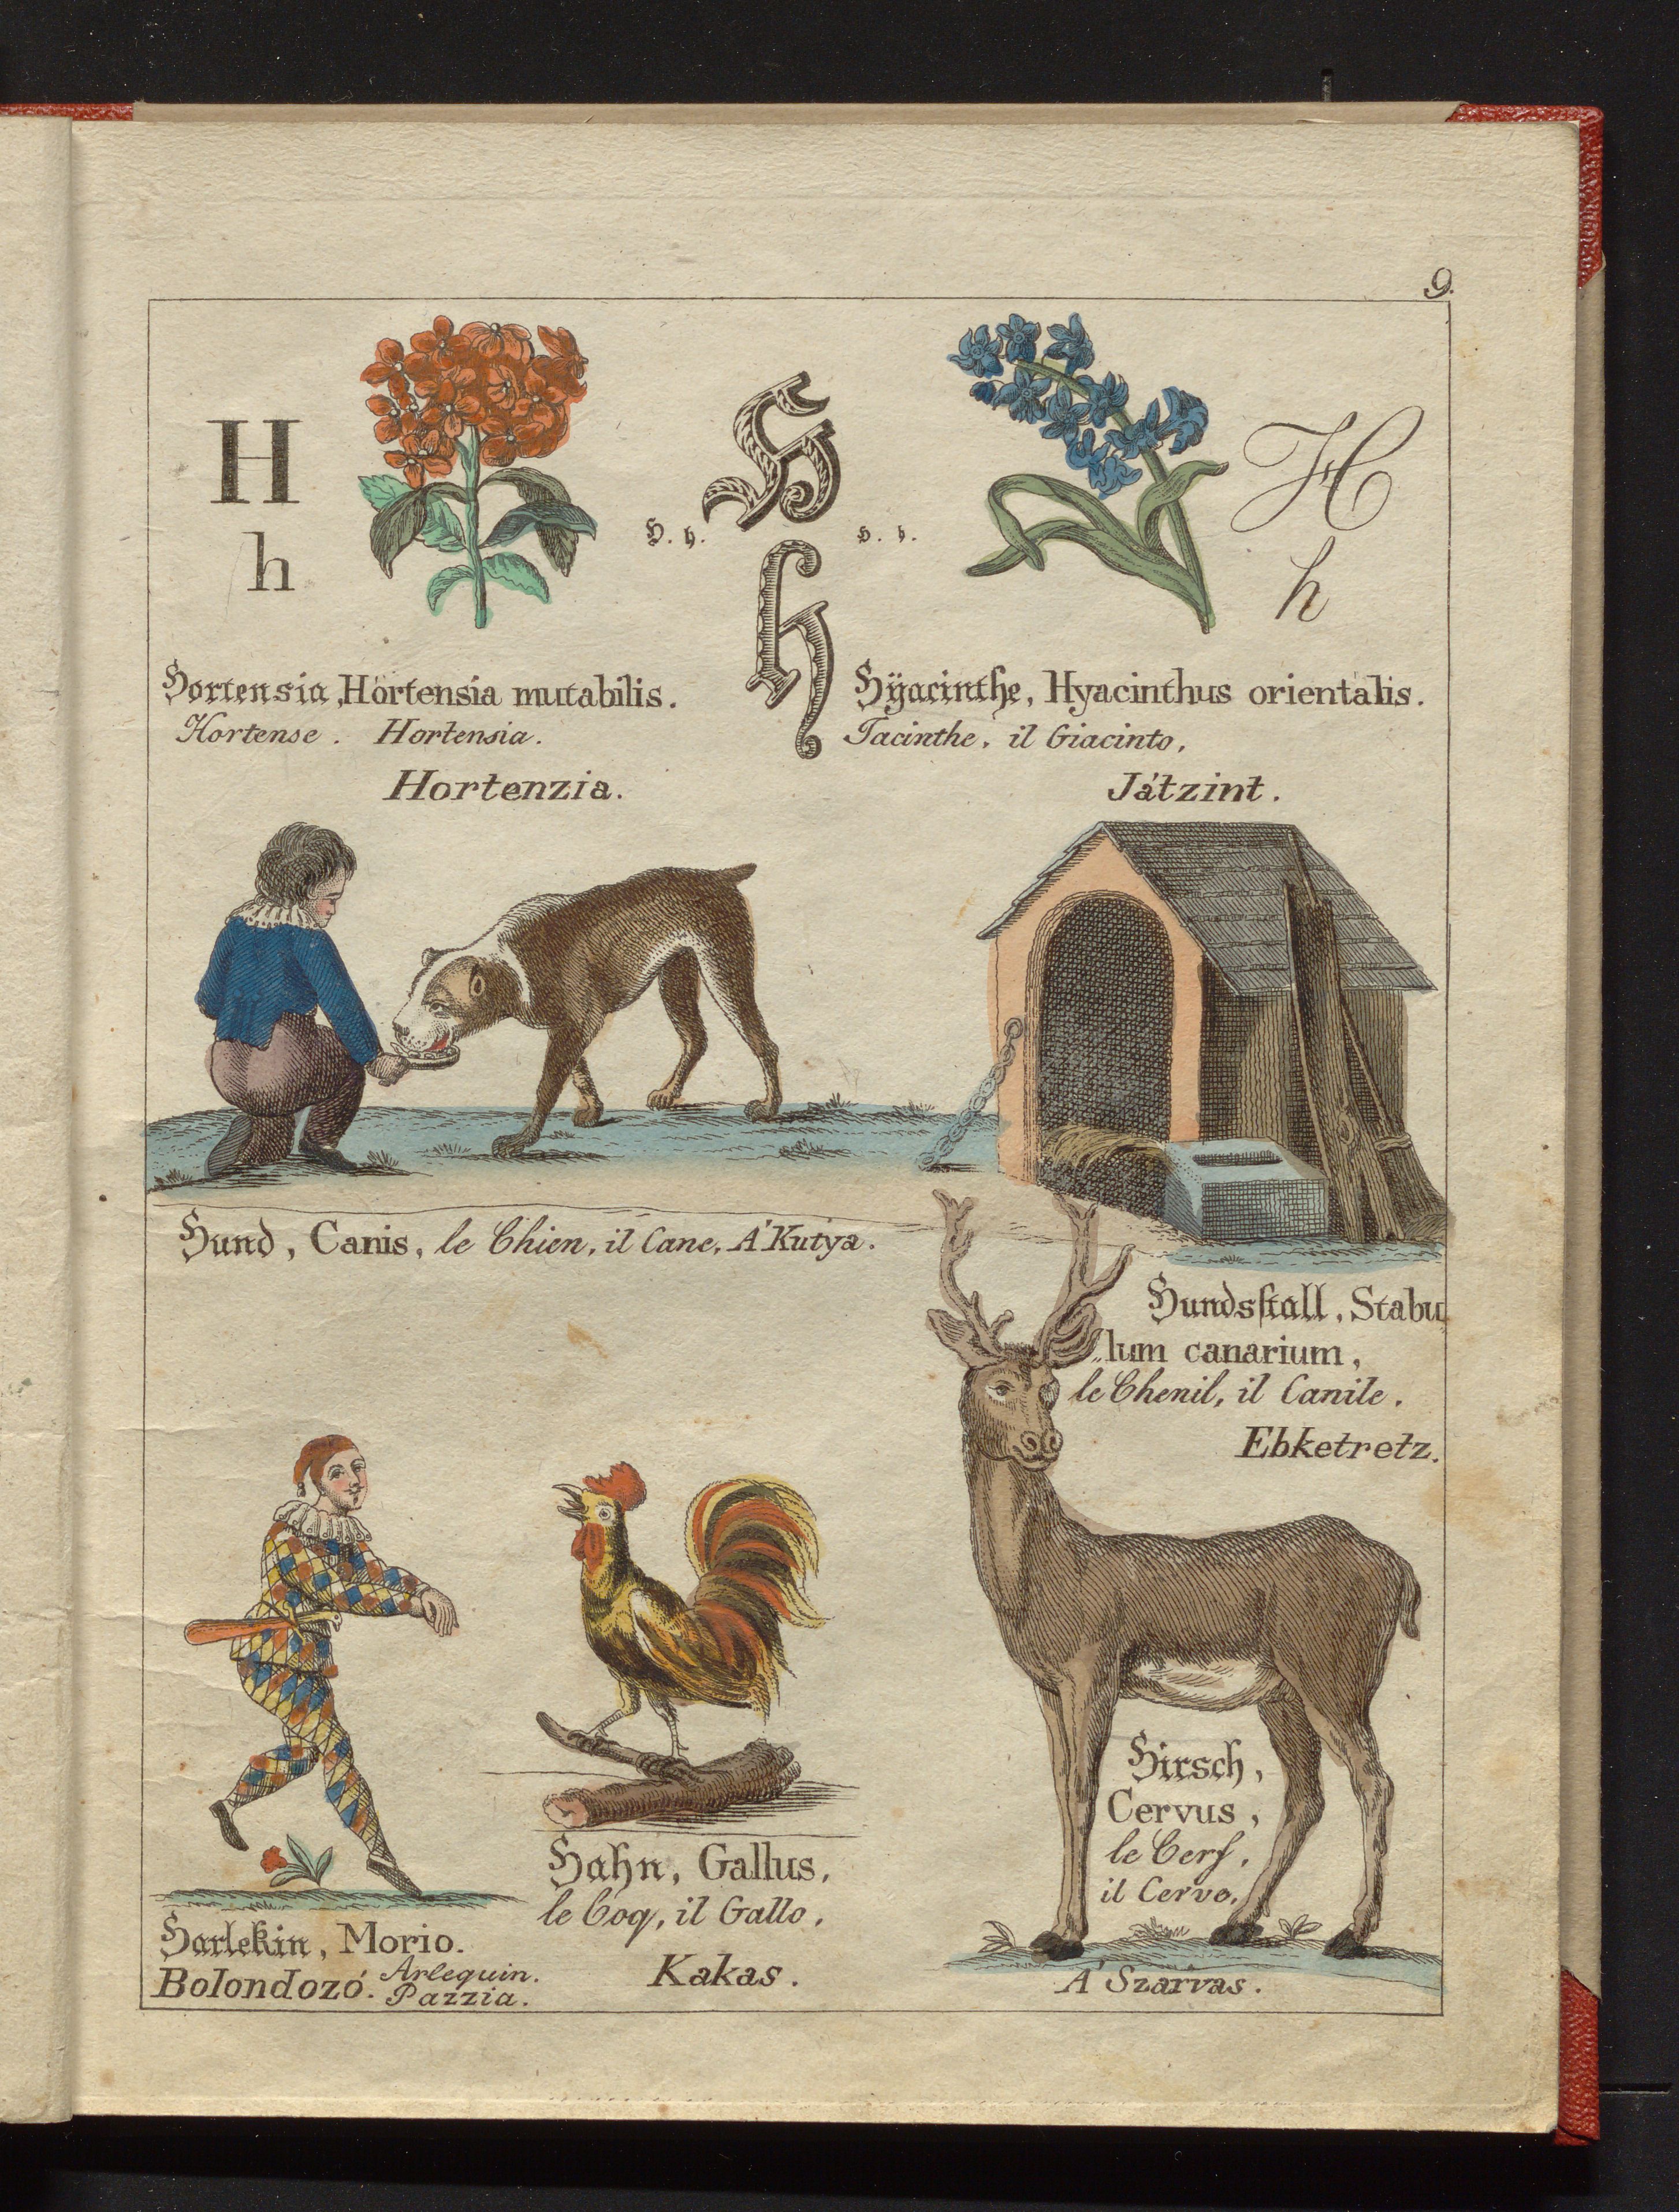 9.
H
h
H
H. h.
H. h.
h
H
h
Hortensia, Hortensia mutabilis.
Hortense. Hortensia.
Hortenzia.
Hÿacinthe, Hyacinthus orientalis.
Jacinthe, il Giacinto,
Játzint.
Hund, Canis, le Chien, il Cane, A' Kutya.
Hundsſtall, Stabu„
„lum canarium,
le Chenil, il Canile.
Ebketretz.
Harlekin, Morio.
Bolondozó. Arlequin.
Pazzia.
Hahn, Gallus,
le Coq, il Gallo,
Kakas.
Hirsch,
Cervus,
le Cerf,
il Cervo,
A' Szarvas.